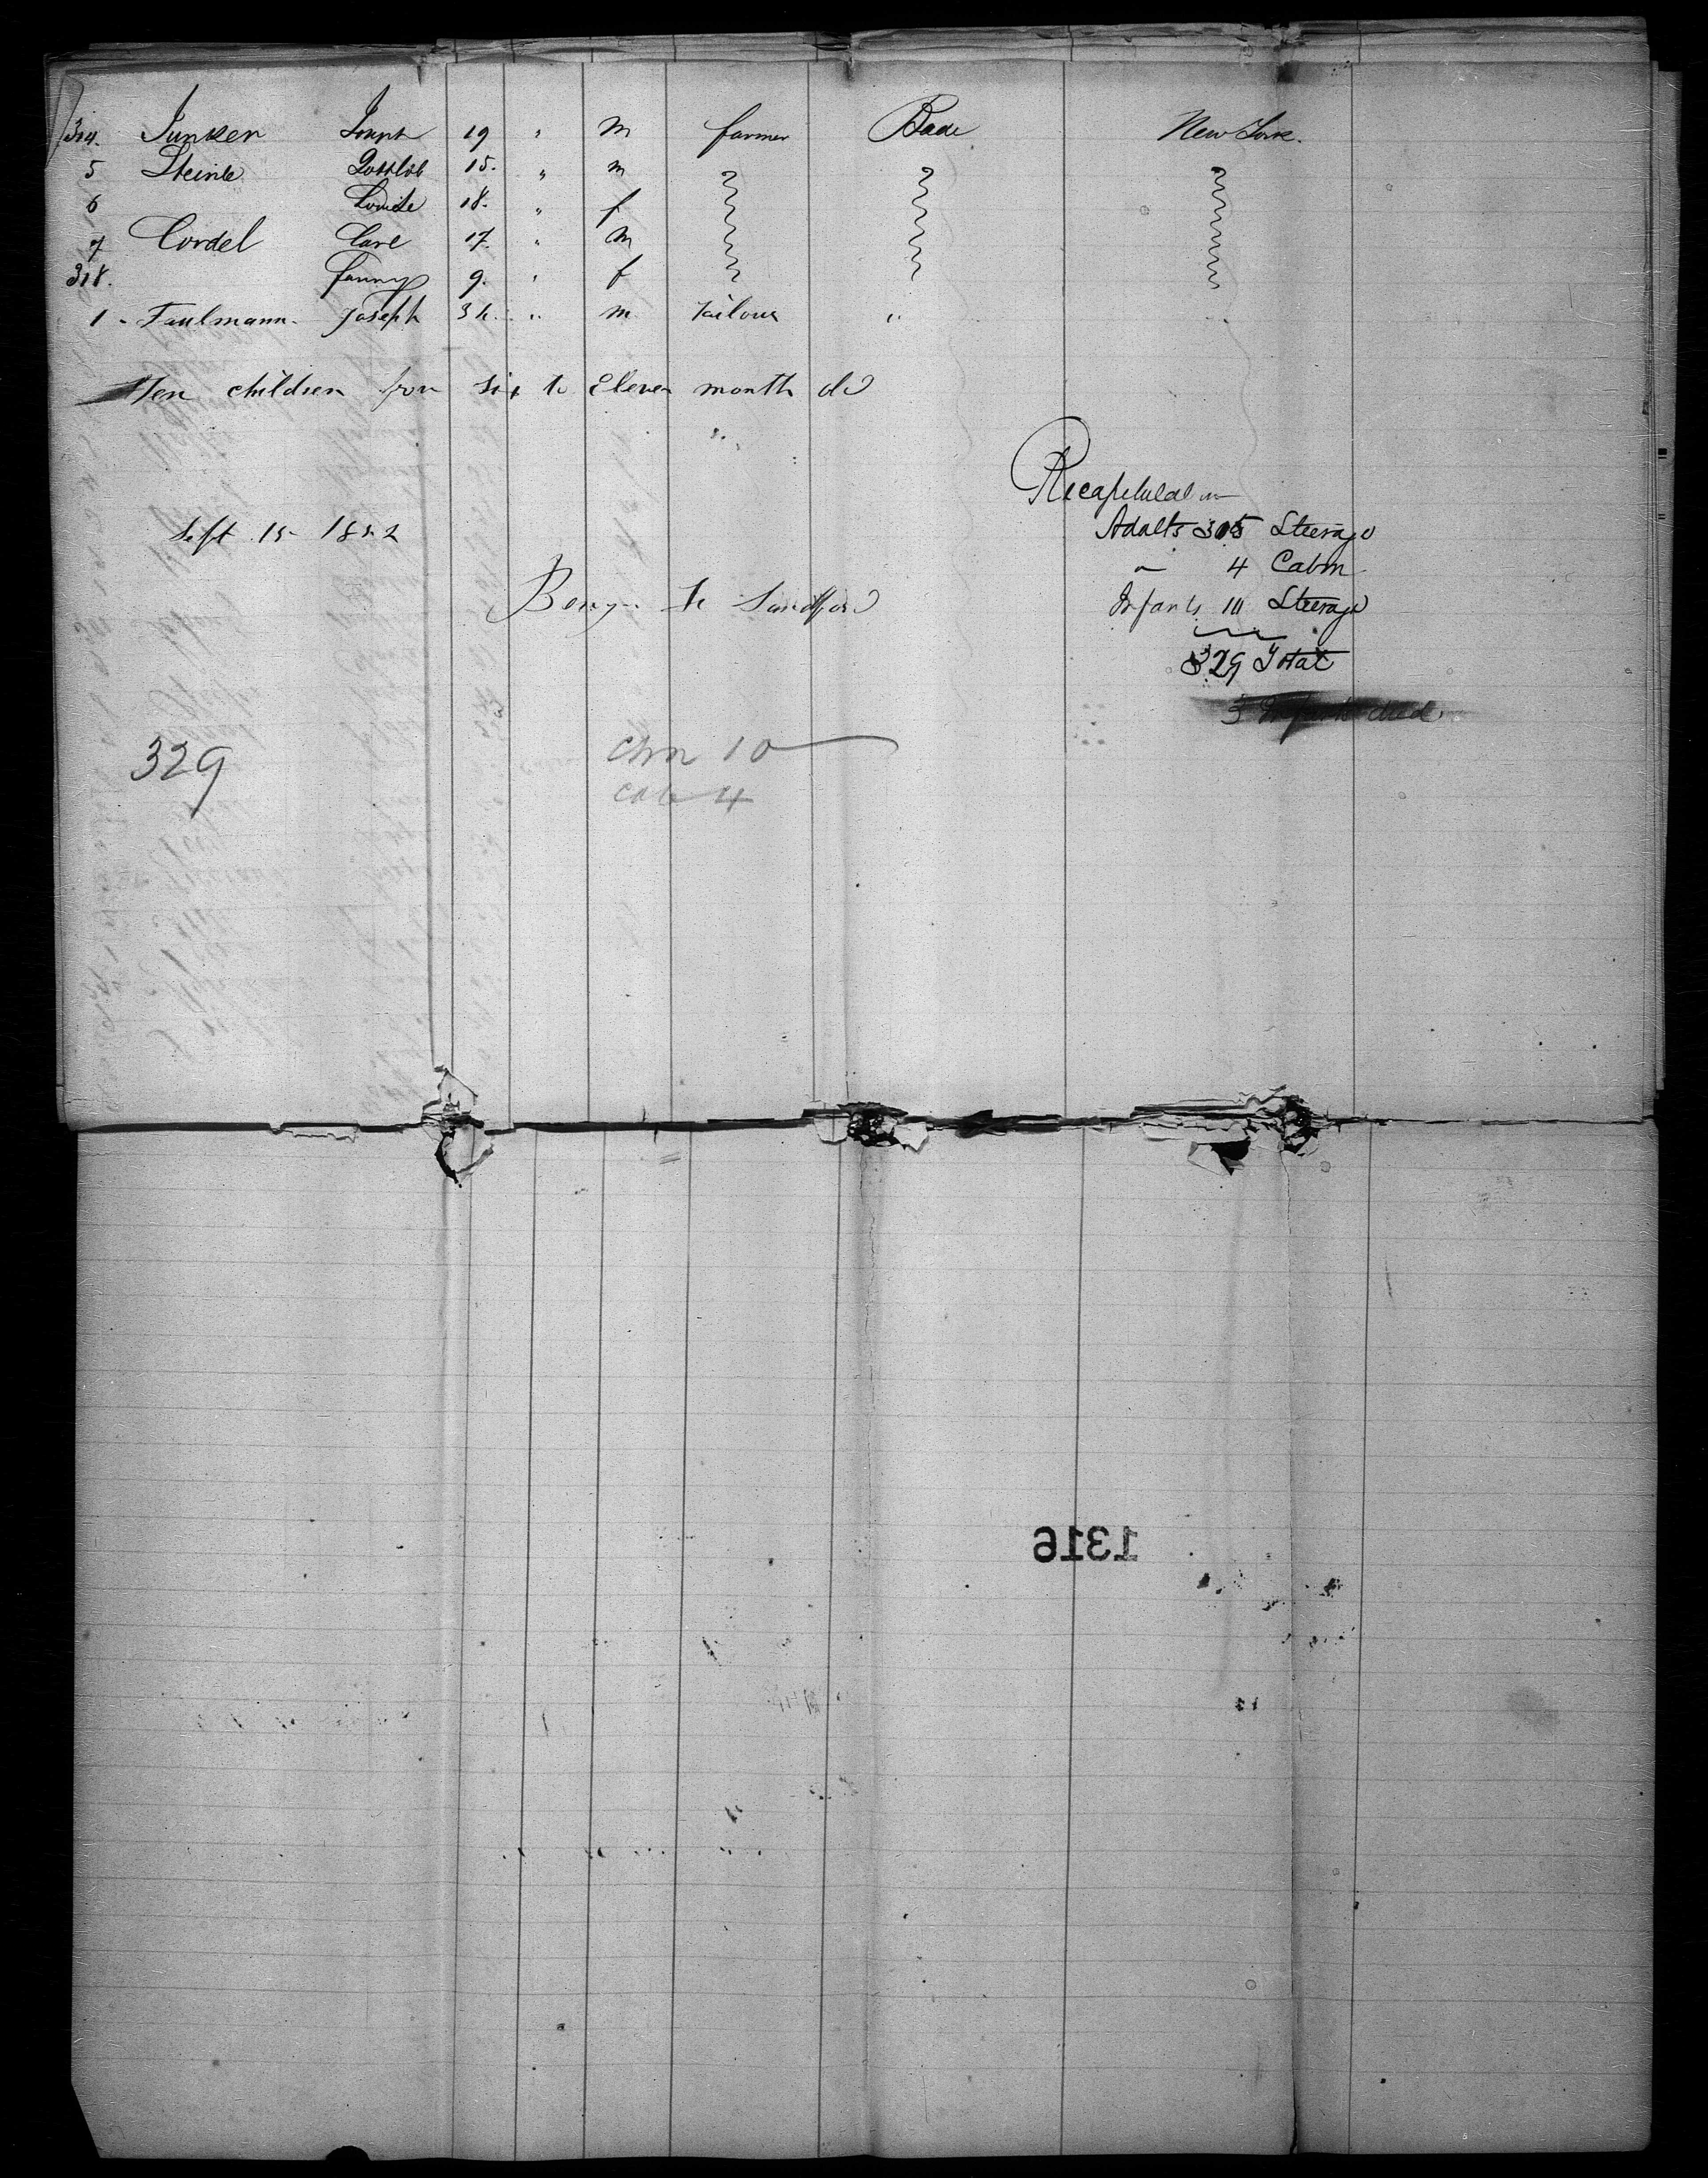 314. Junker Joseph 19 " m farmer Bade New York.
5 Steinle Gottlob 15. " m
6 Louise 18. " f
7 Cordel Carl 17. " m
318. Fanny 9. " f
1 - Faulmann - Joseph 34 - " m tailour "
Ten children from six to Eleven month old
Recapitulation
Sept 15 - 1852
Adults 315 Steerage
" 4 Cabin
Benj. Sandford
Infants 10 Steerage
329 Total
3 Infants died
329
Chn 10
Cab 4
1316